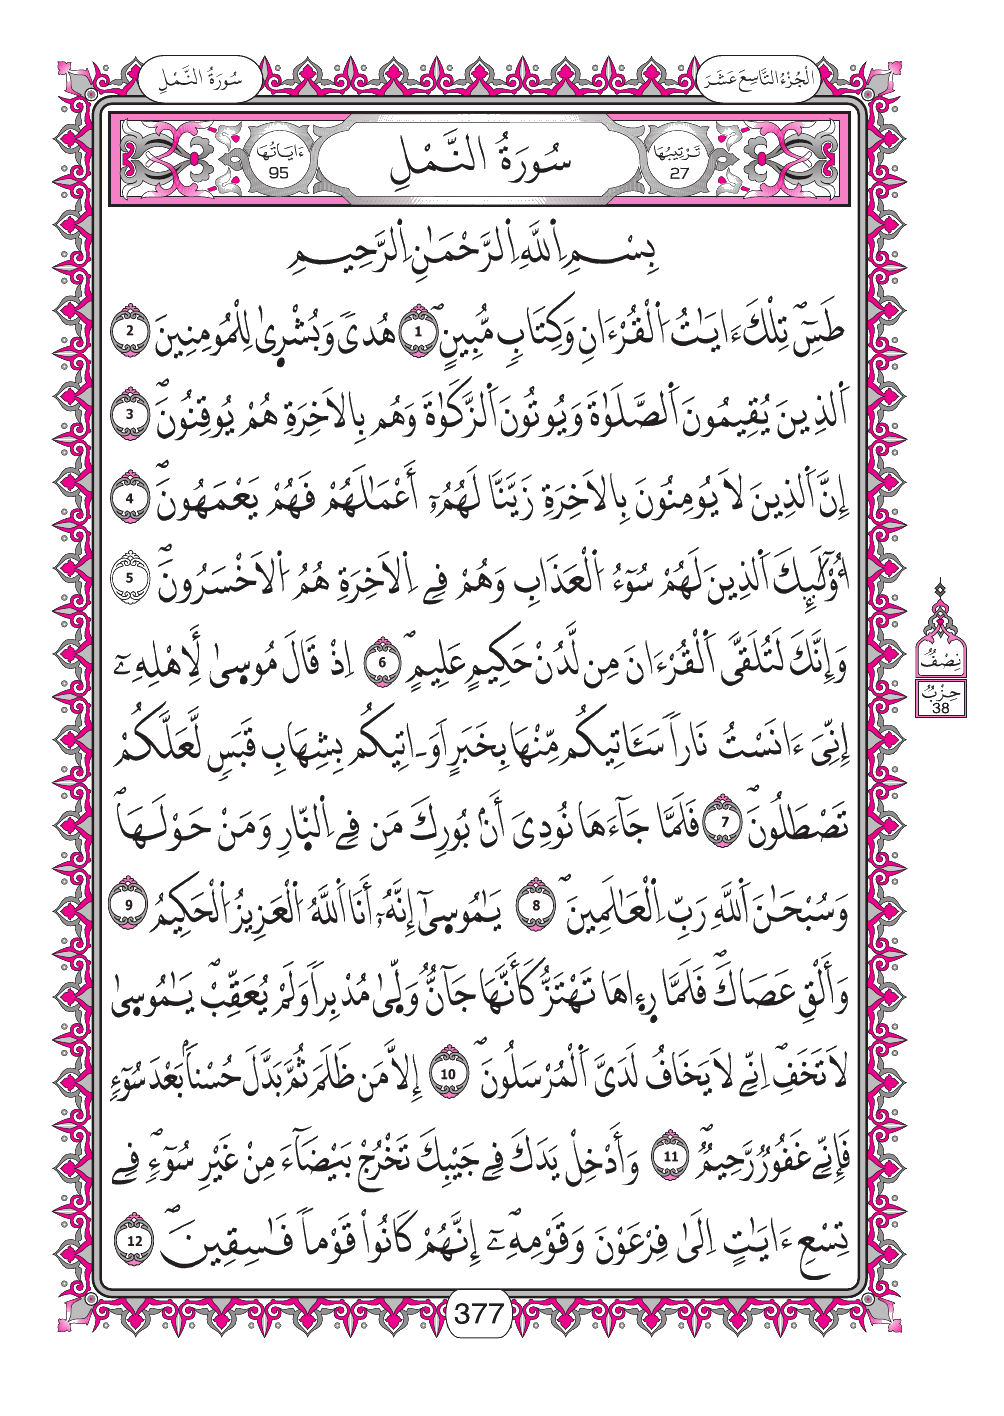 الْجُزْءُ التَّاسِعَ عَشَرَ
سُورَةُ النَّمْلِ
تَرْتِيبُهَا 27
سُورَةُ النَّمْلِ
ءَايَاتُهَا 95
بِسْمِ اِللَّهِ اِلرَّحْمَٰنِ اِلرَّحِيمِ
طَسِٓۖ تِلْكَ ءَايَٰتُ اُلْقُرْءَانِ وَكِتَابٖ مُّبِينٍۖ 1 هُدىٗ وَبُشْر۪يٰ لِلْمُومِنِينَ 2
اَلذِينَ يُقِيمُونَ اَلصَّلَوٰةَ وَيُوتُونَ اَلزَّكَوٰةَ وَهُم بِالَاخِرَةِ هُمْ يُوقِنُونَۖ 3
إِنَّ اَلذِينَ لَا يُومِنُونَ بِالَاخِرَةِ زَيَّنَّا لَهُمُۥٓ أَعْمَٰلَهُمْ فَهُمْ يَعْمَهُونَۖ 4
أُوْلَٰٓئِكَ اَلذِينَ لَهُمْ سُوٓءُ اُلْعَذَابِ وَهُمْ فِے اِلَاخِرَةِ هُمُ اُلَاخْسَرُونَۖ 5
وَإِنَّكَ لَتُلَقَّى اَلْقُرْءَانَ مِن لَّدُنْ حَكِيمٍ عَلِيمٍۖ 6 اِذْ قَالَ مُوس۪يٰ لِأَهْلِهِۦٓ
إِنِّيَ ءَانَسْتُ نَاراٗ سَـَٔاتِيكُم مِّنْهَا بِخَبَرٍ اَوَ ـ اتِيكُم بِشِهَابِ قَبَسٖ لَّعَلَّكُمْ
تَصْطَلُونَۖ 7 فَلَمَّا جَآءَهَا نُودِيَ أَنۢ بُورِكَ مَن فِے اِلنّ۪ارِ وَمَنْ حَوْلَهَاۖ
وَسُبْحَٰنَ اَللَّهِ رَبِّ اِلْعَٰلَمِينَۖ 8 يَٰمُوس۪يٰٓ إِنَّهُۥٓ أَنَا اَللَّهُ اُلْعَزِيزُ اُلْحَكِيمُ 9
وَأَلْقِ عَصَاكَۖ فَلَمَّا ر۪ء۪اهَا تَهْتَزُّ كَأَنَّهَا جَآنّٞ وَلّ۪يٰ مُدْبِراٗ وَلَمْ يُعَقِّبْۖ يَٰمُوس۪يٰ
لَا تَخَفِۖ اِنِّے لَا يَخَافُ لَدَيَّ اَلْمُرْسَلُونَۖ 10 إِلَّا مَن ظَلَمَ ثُمَّ بَدَّلَ حُسْناَۢ بَعْدَ سُوٓءٖ
فَإِنِّے غَفُورٞ رَّحِيمٞۖ 11 وَأَدْخِلْ يَدَكَ فِے جَيْبِكَ تَخْرُجْ بَيْضَآءَ مِنْ غَيْرِ سُوٓءٖۖ فِے
تِسْعِ ءَايَٰتٍ اِلَىٰ فِرْعَوْنَ وَقَوْمِهِۦٓۖ إِنَّهُمْ كَانُواْ قَوْماٗ فَٰسِقِينَۖ 12
نِصْفُ
حِزْبٌ
38
377